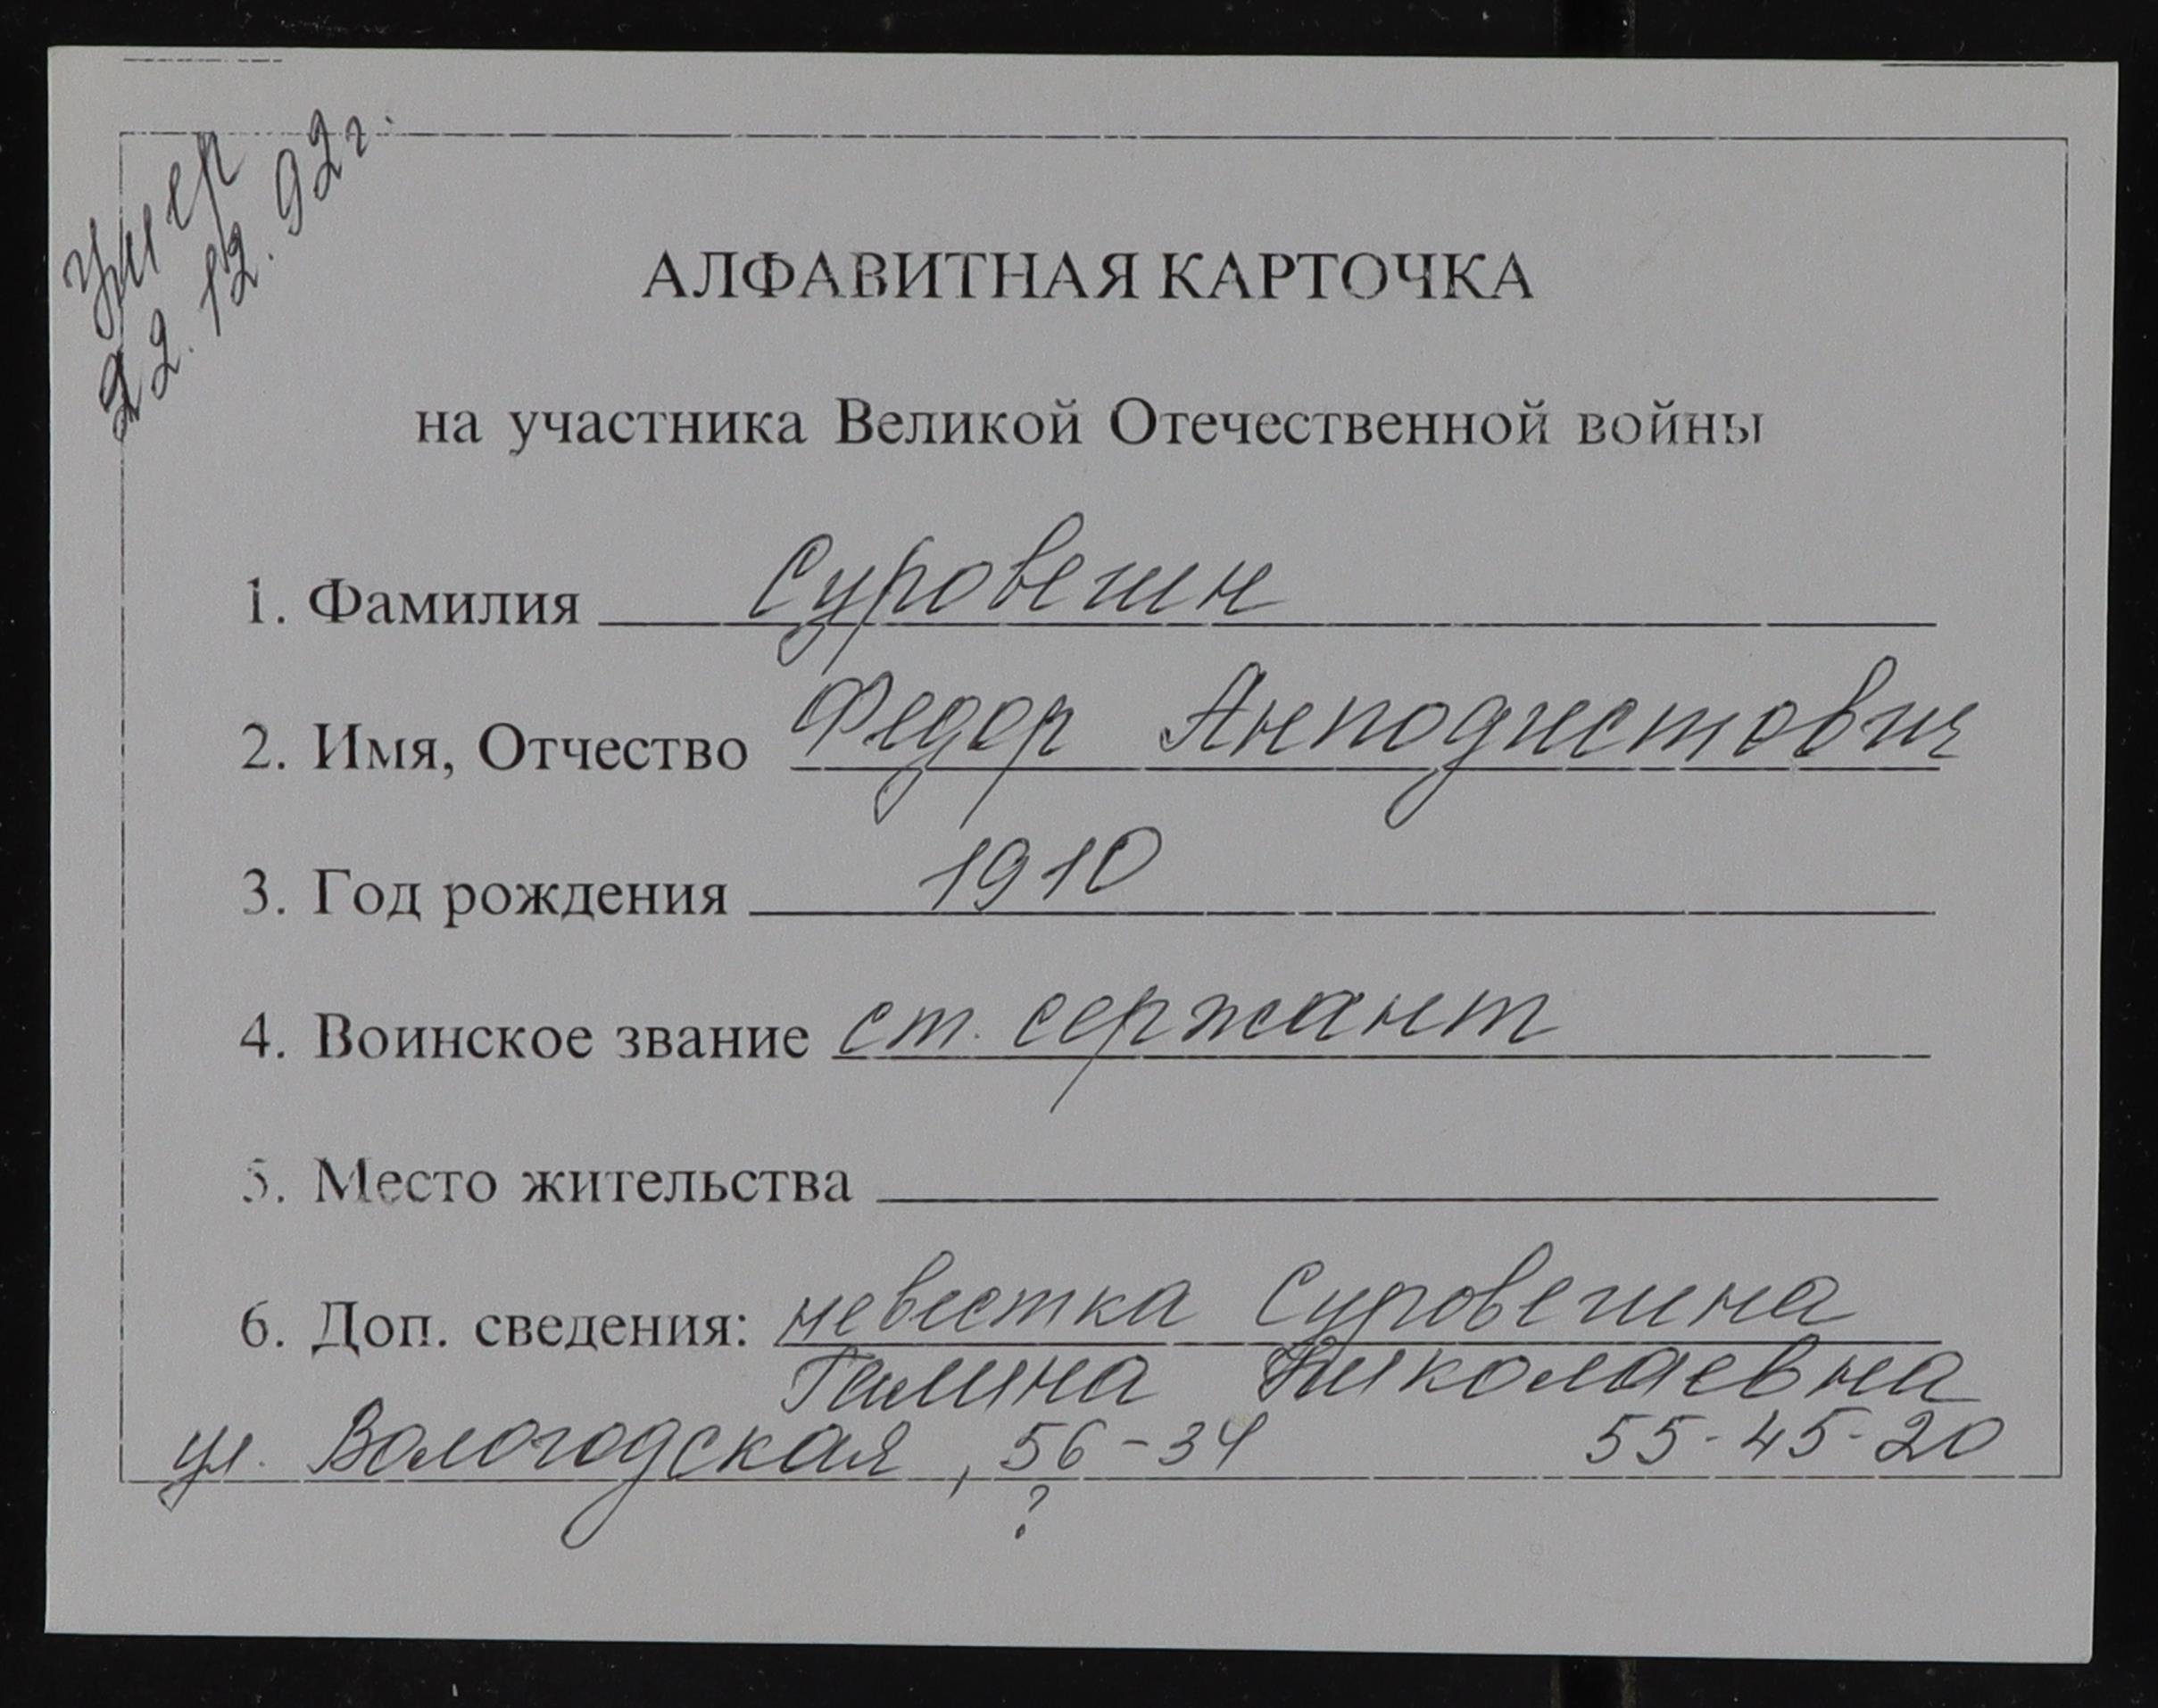 Умер
22.12.92г.
АЛФАВИТНАЯ КАРТОЧКА
на участника Великой Отечественной войны
1. Фамилия Суровегин
2. Имя, Отчество Федор Анподистович
3. Год рождения 1910
4. Воинское звание ст. сержант
5. Место жительства
6. Доп. сведения: невестка Суровегина
Галина Николаевна
ул. Вологодская, 56-34 55-45-20
?